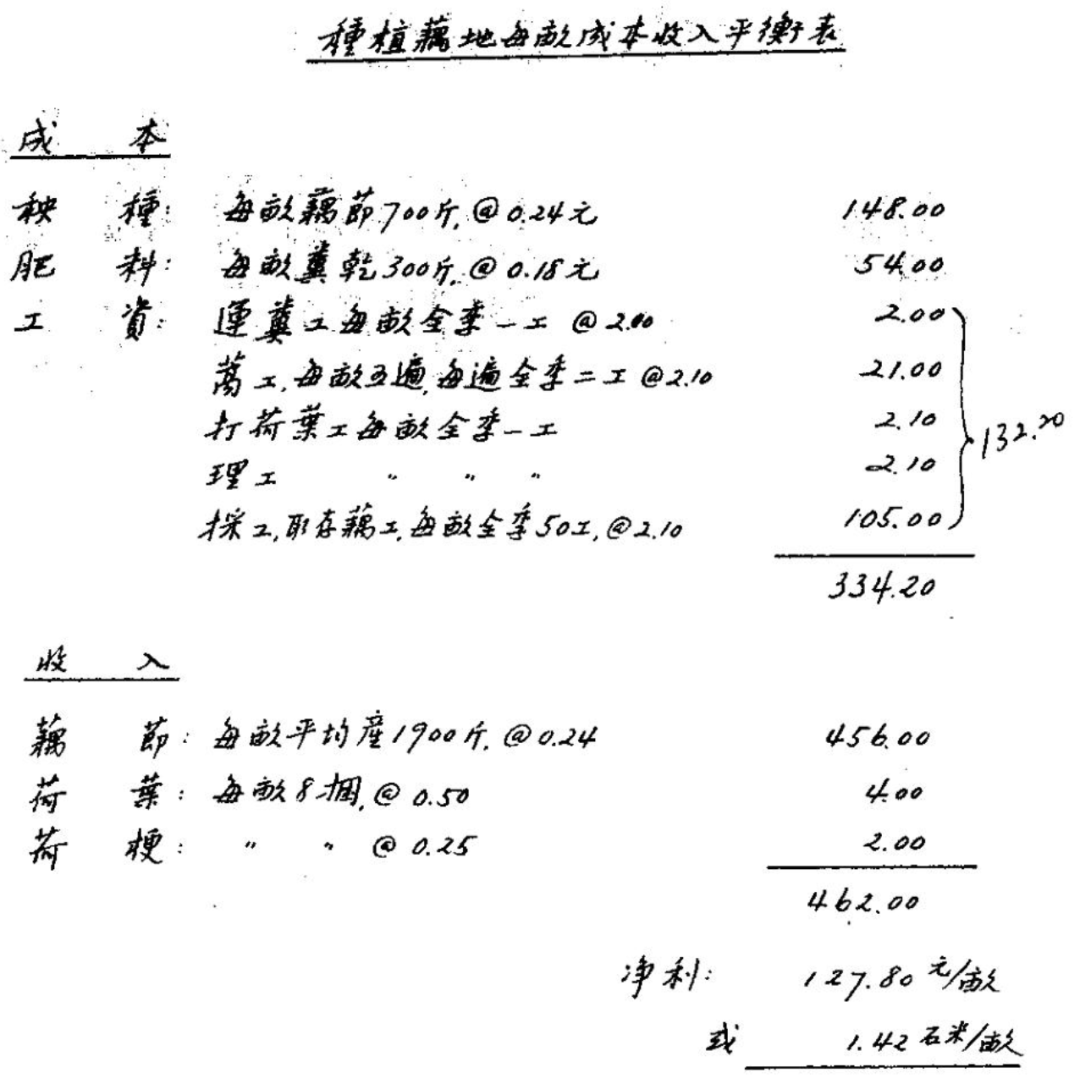 種植藕地每畝成本收入平衡表
成本
秧種: 每畝藕節700斤,@0.24元 148.00
肥料: 每畝糞乾300斤,@0.18元 54.00
工資: 運糞工每畝全季一工 @2.00 2.00
工,每畝五遍,每遍全季二工 @2.10 21.00
打荷葉工每畝全季一工 2.10
理工 〃 〃 〃 2.10
採工,取存藕工,每畝全季50工,@2.10 105.00
132.20
334.20
收入
藕節: 每畝平均産1900斤,@0.24 456.00
荷葉: 每畝8捆,@0.50 4.00
荷梗: 〃 〃 @0.25 2.00
462.00
净利: 127.80元/畝
或 1.42石米/畝